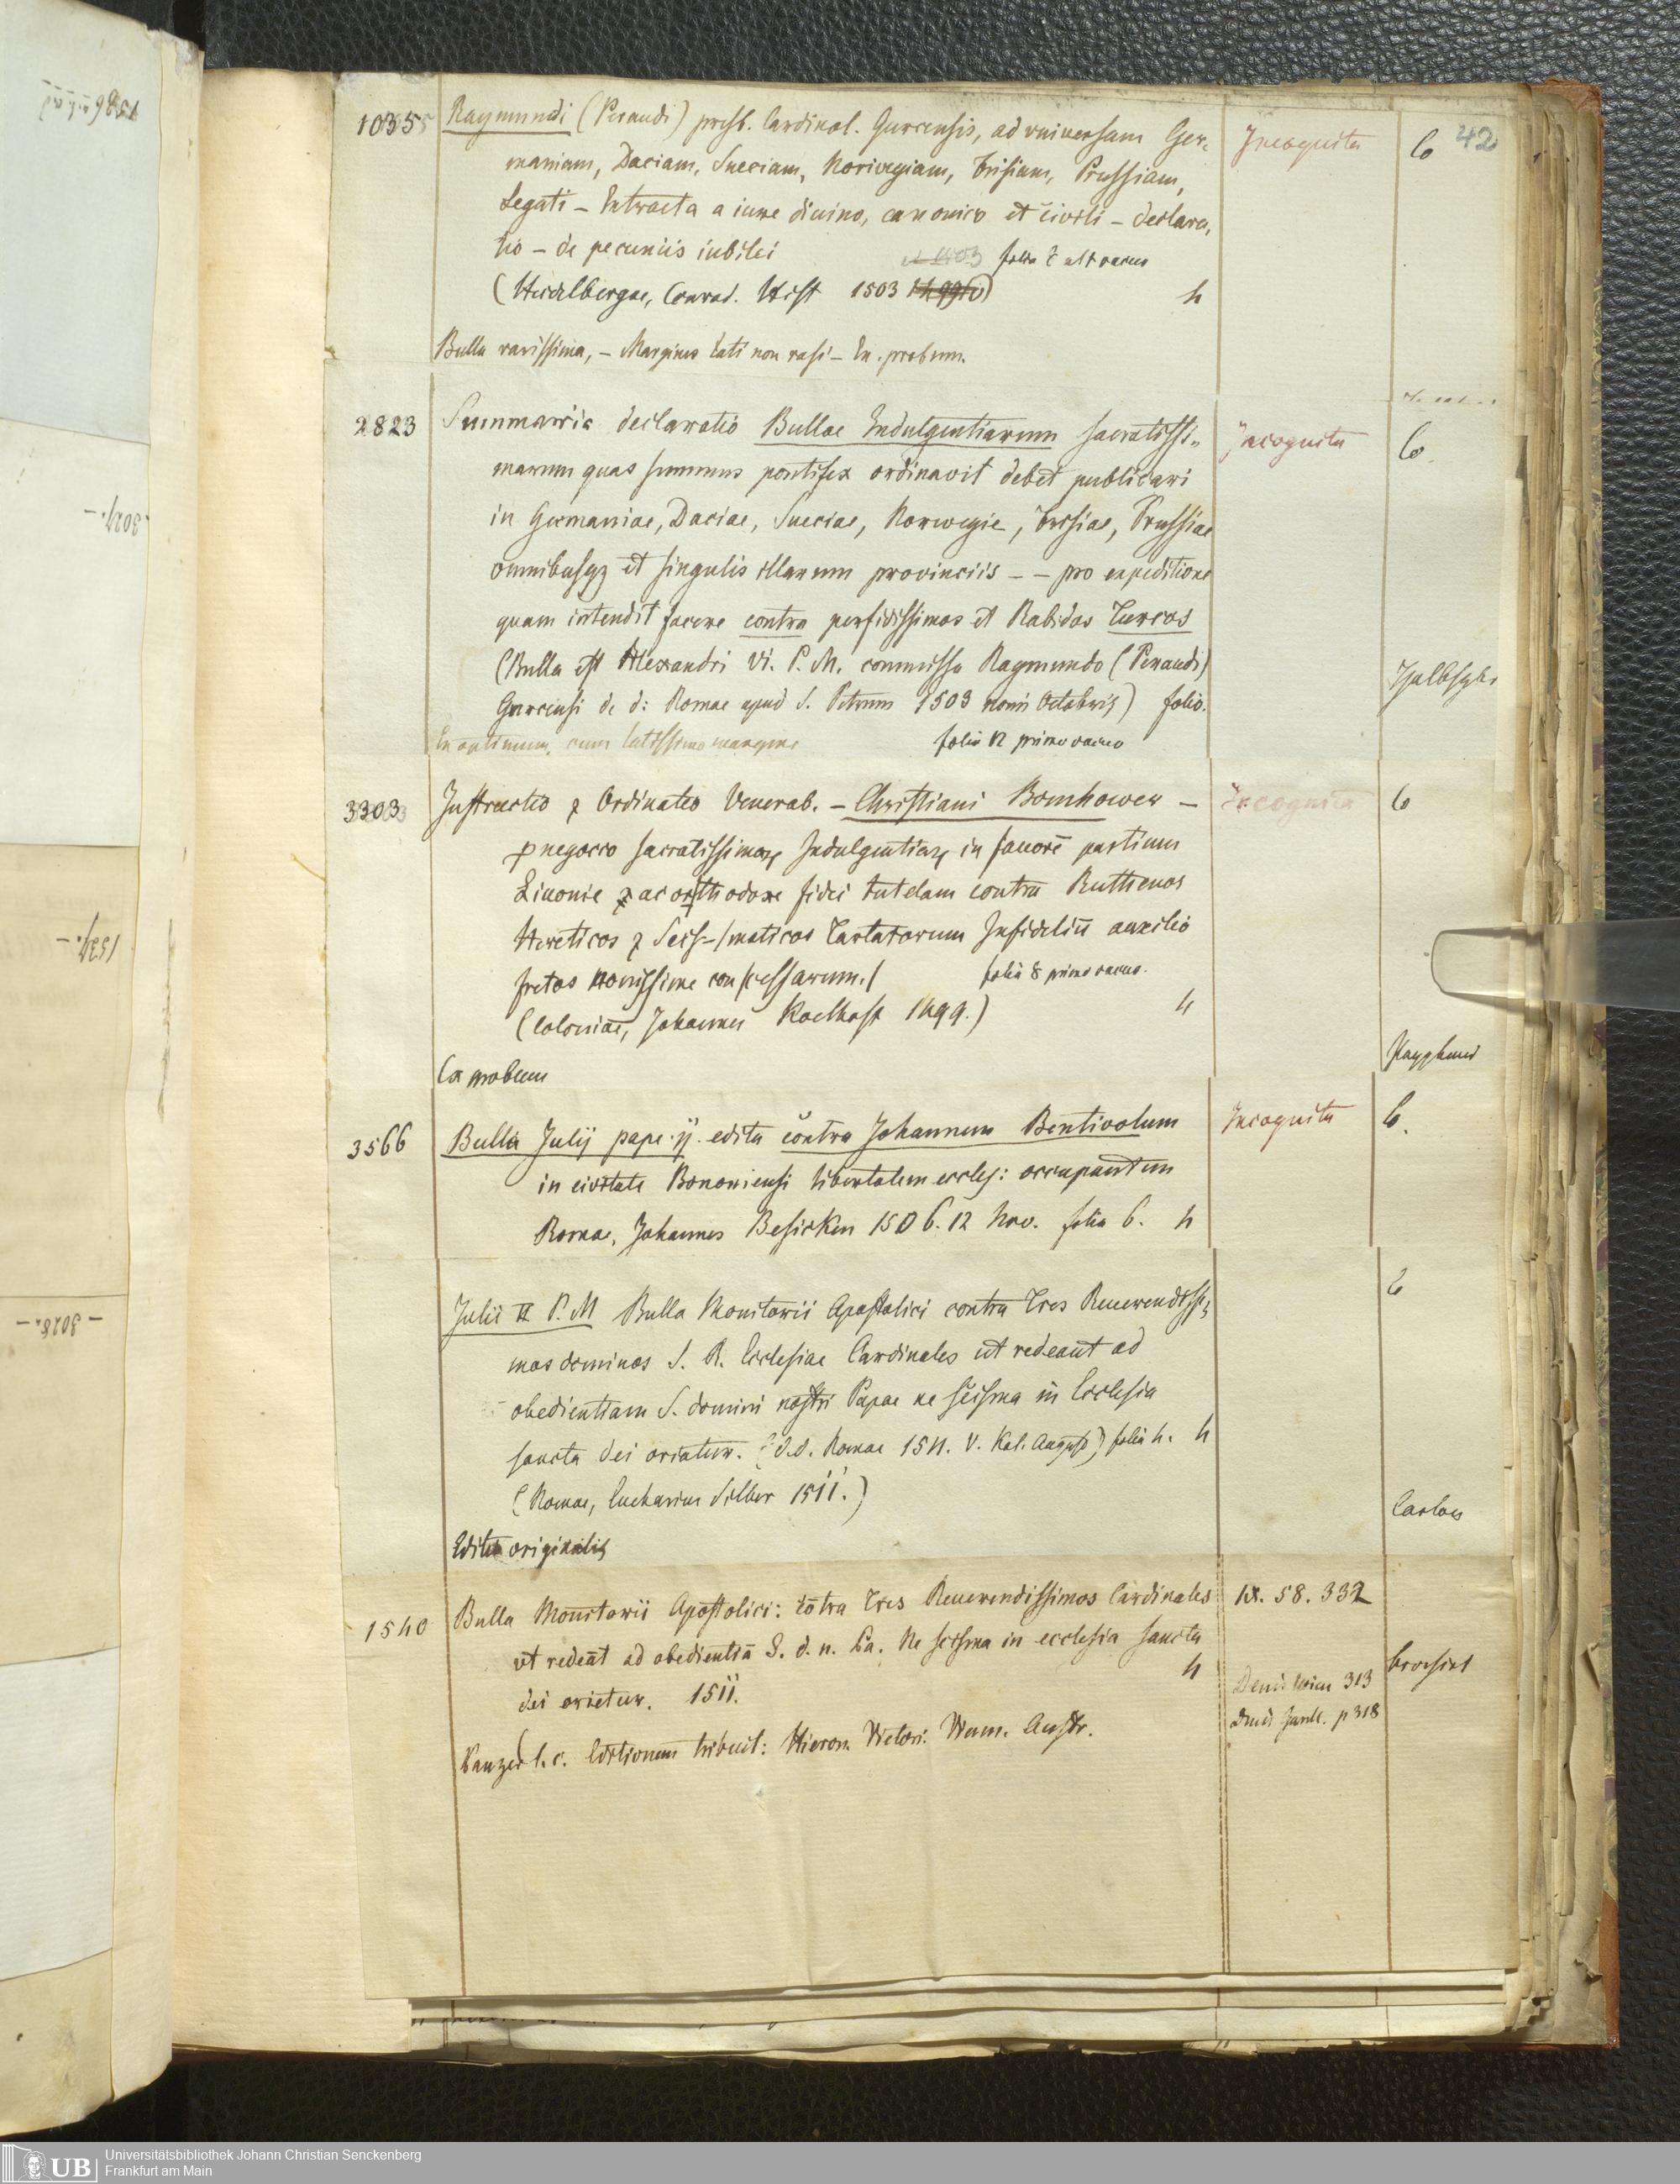 42
1035 Raymundi (Peraudi) presb. Cardinal. Gurcensis, ad vniuersam Ger- Incognita
maniam, Daciam, Sueciam, Norwegiam, Frisiam, Prussiam,
Legati – Extracta a iure diuino, canonico et civili – declara-
tio – de pecuniis iubilei
folia ult vacuo
(Heidelbergae, Conrad. Hist 1503) 4
Bulla rarissima, – Margines lati non rasi – Ex. probum.
2823 Summaria declaratio Bullae Indulgentiarum sacratissi- Incognita
marum quas summus pontifex ordinavit debet publicari
in Germaniae, Daciae, Sueciae, Norwegie, Frisiae, Prussiae
omnibusqz et singulis illarum provinciis – – pro expeditione
quam intendit facere contra perfidissimos et Rabidos Turcos
(Bulla est Alexandri VI. P. M. commissa Raymundo (Peraudi)
Gurcensi de d: Romae apud S. Petrum 1503 nonis Octobris) folio.
Ex optimum, cum latissimo margine folia 12 primo vacuo
3303 Instructio & Ordinatio Venerab. – Christiani Bomhower – Incognita
p negocio sacratissimaz Indulgentiaz in fauorē partium
Liuonie ac orthodoxe fidei tutelam contra Ruthenos
Hereticos & Scis-/maticos Tartarorum Infideliū auxilio
fretos nouissime con/cessarum./ folia 8 primo vacuo.
(Coloniae, Johannes Koelhoff 1499.) 4
Ex probum
3566 Bulla Julij pape ij. edita cōtra Johannem Bentivolum Incognita
in civitate Bononiensi libertatem eccles: occupantem
Romae, Johannes Besicken 1506. 12 Nov. folia 6. 4
Julii II P. M Bulla Monitorii Apostolici contra tres Reuerendissi-
mos dominos S. R. Ecclesiae Cardinales ut redeant ad
obedientiam S. domini nostri Papae ne scisma in Ecclesia
sancta dei oriatur. (d.d. Romae 1511. V. Kal. August) folia 4. 4
(Romae, Eucharius Silber 1511.)
Editio originalis
1540 Bulla Monitorii Apostolici: cōtra tres Reuerendissimos Cardinales IX. 58. 332
vt redeāt ad obedientiā S. d. n. Pa. Ne scisma in ecclesia sancta 4
dei orietur. 1511. Denis Wien 313
p 318
Panzer l. c. Editionem tribuit: Hieron. Vietori. Wienn. Austr.
UB Universitätsbibliothek Johann Christian Senckenberg
Frankfurt am Main